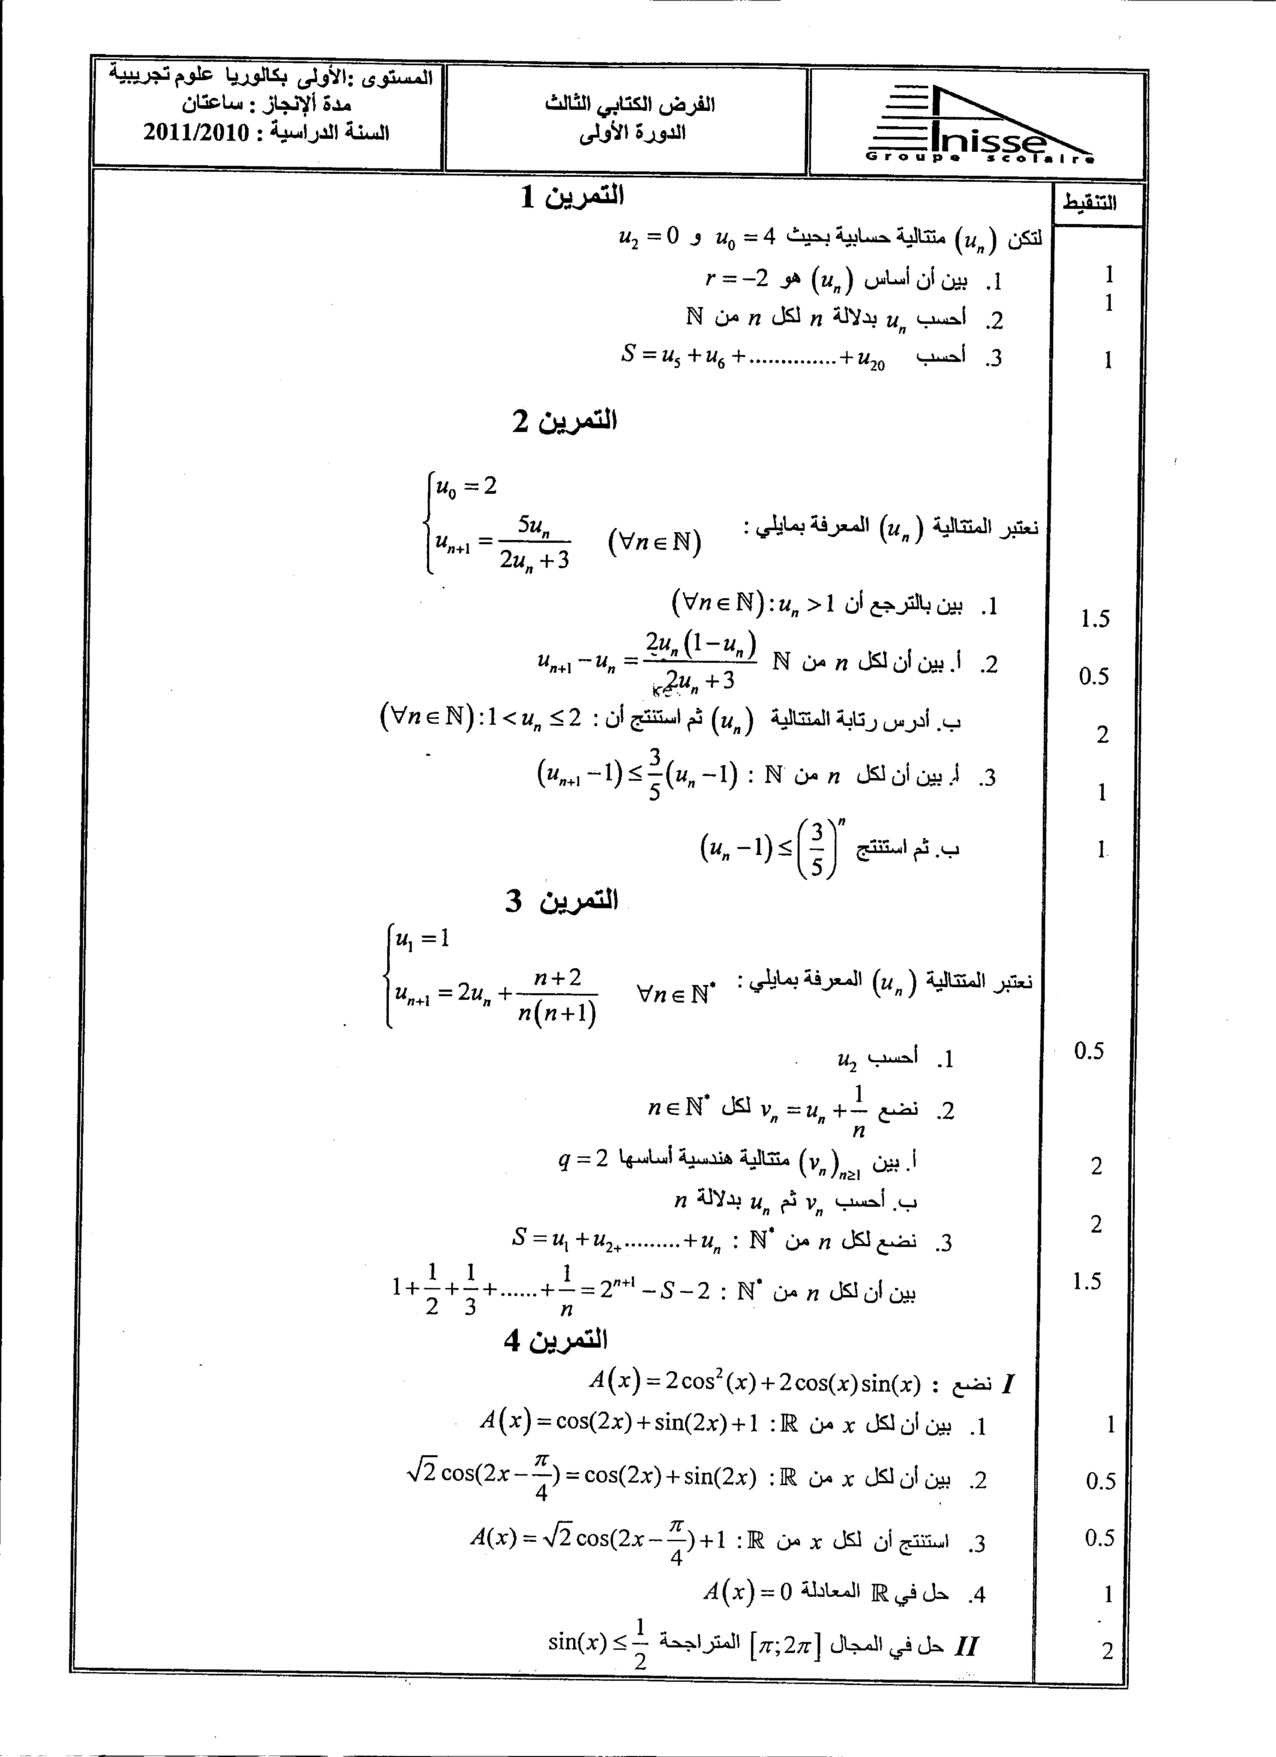 Anisse
Groupe scolaire
الفرض الكتابي الثالث
الدورة الأولى
المستوى :الأولى بكالوريا علوم تجريبية
مدة الإنجاز : ساعتان
السنة الدراسية : 2011/2010
التنقيط
التمرين 1
لتكن (u_n) متتالية حسابية بحيث u_0 = 4 و u_2 = 0
1. بين أن أساس (u_n) هو r = −2 1
2. أحسب u_n بدلالة n لكل n من ℕ 1
3. أحسب S = u_5 + u_6 + .............. + u_20 1
التمرين 2
نعتبر المتتالية (u_n) المعرفة بمايلي : { u_0 = 2
u_{n+1} = 5u_n / (2u_n + 3) (∀n ∈ ℕ)
1. بين بالترجع أن (∀n ∈ ℕ) : u_n > 1 1.5
2. أ. بين أن لكل n من ℕ u_{n+1} − u_n = 2u_n(1 − u_n) / (2u_n + 3) 0.5
ب. أدرس رتابة المتتالية (u_n) ثم استنتج أن : (∀n ∈ ℕ) : 1 < u_n ≤ 2 2
3. أ. بين أن لكل n من ℕ : (u_{n+1} − 1) ≤ 3/5 (u_n − 1) 1
ب. ثم استنتج (u_n − 1) ≤ (3/5)^n 1
التمرين 3
نعتبر المتتالية (u_n) المعرفة بمايلي : { u_1 = 1
u_{n+1} = 2u_n + (n+2) / n(n+1) ∀n ∈ ℕ*
1. أحسب u_2 0.5
2. نضع v_n = u_n + 1/n لكل n ∈ ℕ*
أ. بين (v_n)_{n≥1} متتالية هندسية أساسها q = 2 2
ب. أحسب v_n ثم u_n بدلالة n 2
3. نضع لكل n من ℕ* : S = u_1 + u_2+ ......... + u_n
بين أن لكل n من ℕ* : 1 + 1/2 + 1/3 + ...... + 1/n = 2^{n+1} − S − 2 1.5
التمرين 4
I نضع : A(x) = 2cos²(x) + 2cos(x)sin(x)
1. بين أن لكل x من ℝ : A(x) = cos(2x) + sin(2x) + 1 1
2. بين أن لكل x من ℝ : √2 cos(2x − π/4) = cos(2x) + sin(2x) 0.5
3. استنتج أن لكل x من ℝ : A(x) = √2 cos(2x − π/4) + 1 0.5
4. حل في ℝ المعادلة A(x) = 0 1
II حل في المجال [π;2π] المتراجحة sin(x) ≤ 1/2 2